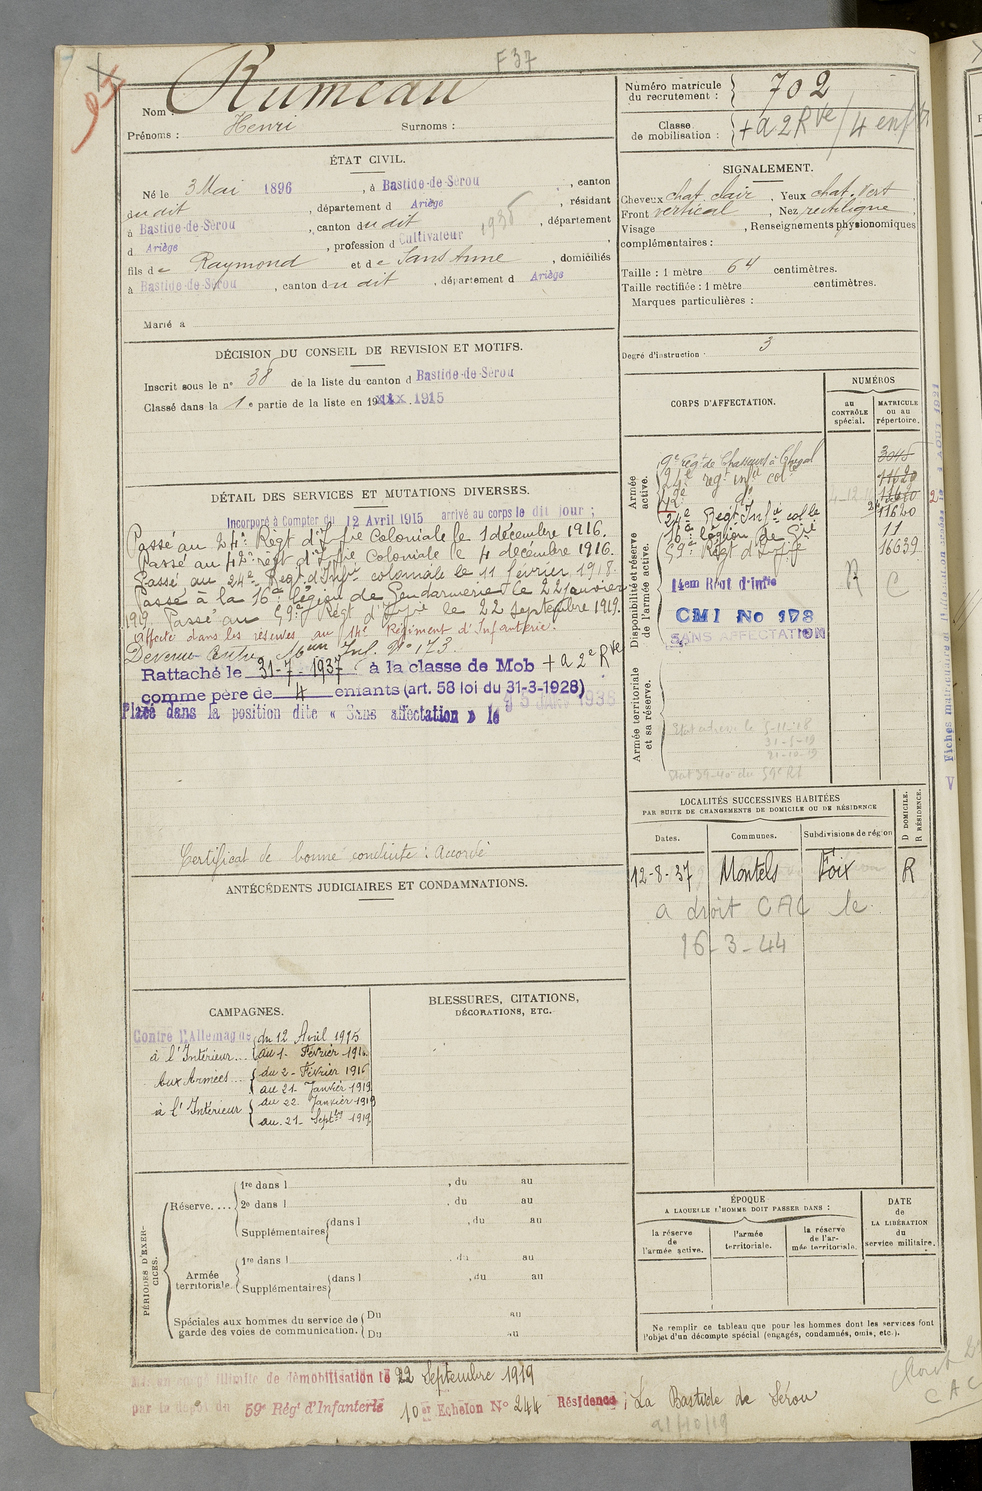 F37
Nom : Rumeau
Prénoms : Henri Surnoms :
ÉTAT CIVIL.
Né le 3 Mai 1896, à Bastide-de-Sérou, canton
du dit, département d Ariège, résidant
à Bastide-de-Sérou, canton du dit, département
d Ariège, profession d Cultivateur
fils de Raymond et de Sans Anne, domiciliés
à Bastide-de-Sérou, canton du dit, département d Ariège
Marié à
DÉCISION DU CONSEIL DE REVISION ET MOTIFS.
Inscrit sous le n° 38 de la liste du canton d Bastide-de-Sérou
Classé dans la 1e partie de la liste en 19 1915
DÉTAIL DES SERVICES ET MUTATIONS DIVERSES.
Incorporé à Compter du 12 Avril 1915 arrivé au corps le dit jour ;
Passé au 24e Régt d'Infie Coloniale le 1 décembre 1916.
Passé au 42e régt d'Infie Coloniale le 4 décembre 1916.
Passé au 24e Régt d'Infie coloniale le 11 février 1918.
Passé à la 16e Légion de Gendarmerie le 22 janvier
1919. Passé au 59e Régt d'Infie le 22 septembre 1919.
affecté dans les réserves au 14e Régiment d'Infanterie.
Devenu Centre Mon Inf. N° 173.
Rattaché le 31-7-1937 à la classe de Mob + a 2e Rve
comme père de 4 enfants (art. 58 loi du 31-3-1928)
Placé dans la position dite « Sans affectation » le 15 JANV 1938
Certificat de bonne conduite : Accordé
ANTÉCÉDENTS JUDICIAIRES ET CONDAMNATIONS.
CAMPAGNES.
Contre l'Allemagne du 12 Avril 1915
à l'Intérieur... au 1. Février 1916
Aux Armées... du 2. Février 1916
au 21. Janvier 1919
à l'Intérieur du 22. Janvier 1919
au 21. Septbre 1919
BLESSURES, CITATIONS,
DÉCORATIONS, ETC.
PÉRIODES D'EXERCICES.
Réserve.... 1re dans l , du au
2e dans l , du au
Supplémentaires dans l , du au
l , du au
Armée territoriale. 1re dans l , du au
Supplémentaires dans l , du au
Spéciales aux hommes du service de garde des voies de communication. Du au
Du au
illimité de démobilisation le 22 Septembre 1919
par le dépôt du 59e Régt d'Infanterie 10er Echelon N° 244 Résidence ; La Bastide de Sérou
21/10/19
Numéro matricule du recrutement : 702
Classe de mobilisation : + a 2 Rve / 4 enfts
SIGNALEMENT.
Cheveux chat. clair, Yeux chat. vert
Front vertical, Nez rectiligne,
Visage , Renseignements physionomiques
complémentaires :
Taille : 1 mètre 64 centimètres.
Taille rectifiée : 1 mètre centimètres.
Marques particulières :
Degré d'instruction : 3
CORPS D'AFFECTATION.
NUMÉROS
au CONTRÔLE spécial.
MATRICULE ou au répertoire.
Armée active.
9e Régt de Chasseurs à Cheval 3045
24e régt infie cole 11620
42e do
24e Régt Infie colle 11620
16e légion de Gie 11
59e Régt d'Infie 16639
Disponibilité et réserve de l'armée active.
14em Régt d'Infie R C
CMI No 173
SANS AFFECTATION
Armée territoriale et sa réserve.
LOCALITÉS SUCCESSIVES HABITÉES
PAR SUITE DE CHANGEMENTS DE DOMICILE OU DE RÉSIDENCE
Dates. Communes. Subdivisions de région D DOMICILE. R RÉSIDENCE.
12-8-37 Montels Foix R
a droit CAC le
16-3-44
ÉPOQUE
A LAQUELLE L'HOMME DOIT PASSER DANS :
la réserve de l'armée active. l'armée territoriale. la réserve de l'armée territoriale.
DATE de LA LIBÉRATION du service militaire.
Ne remplir ce tableau que pour les hommes dont les services font
l'objet d'un décompte spécial (engagés, condamnés, omis, etc.).
CAC